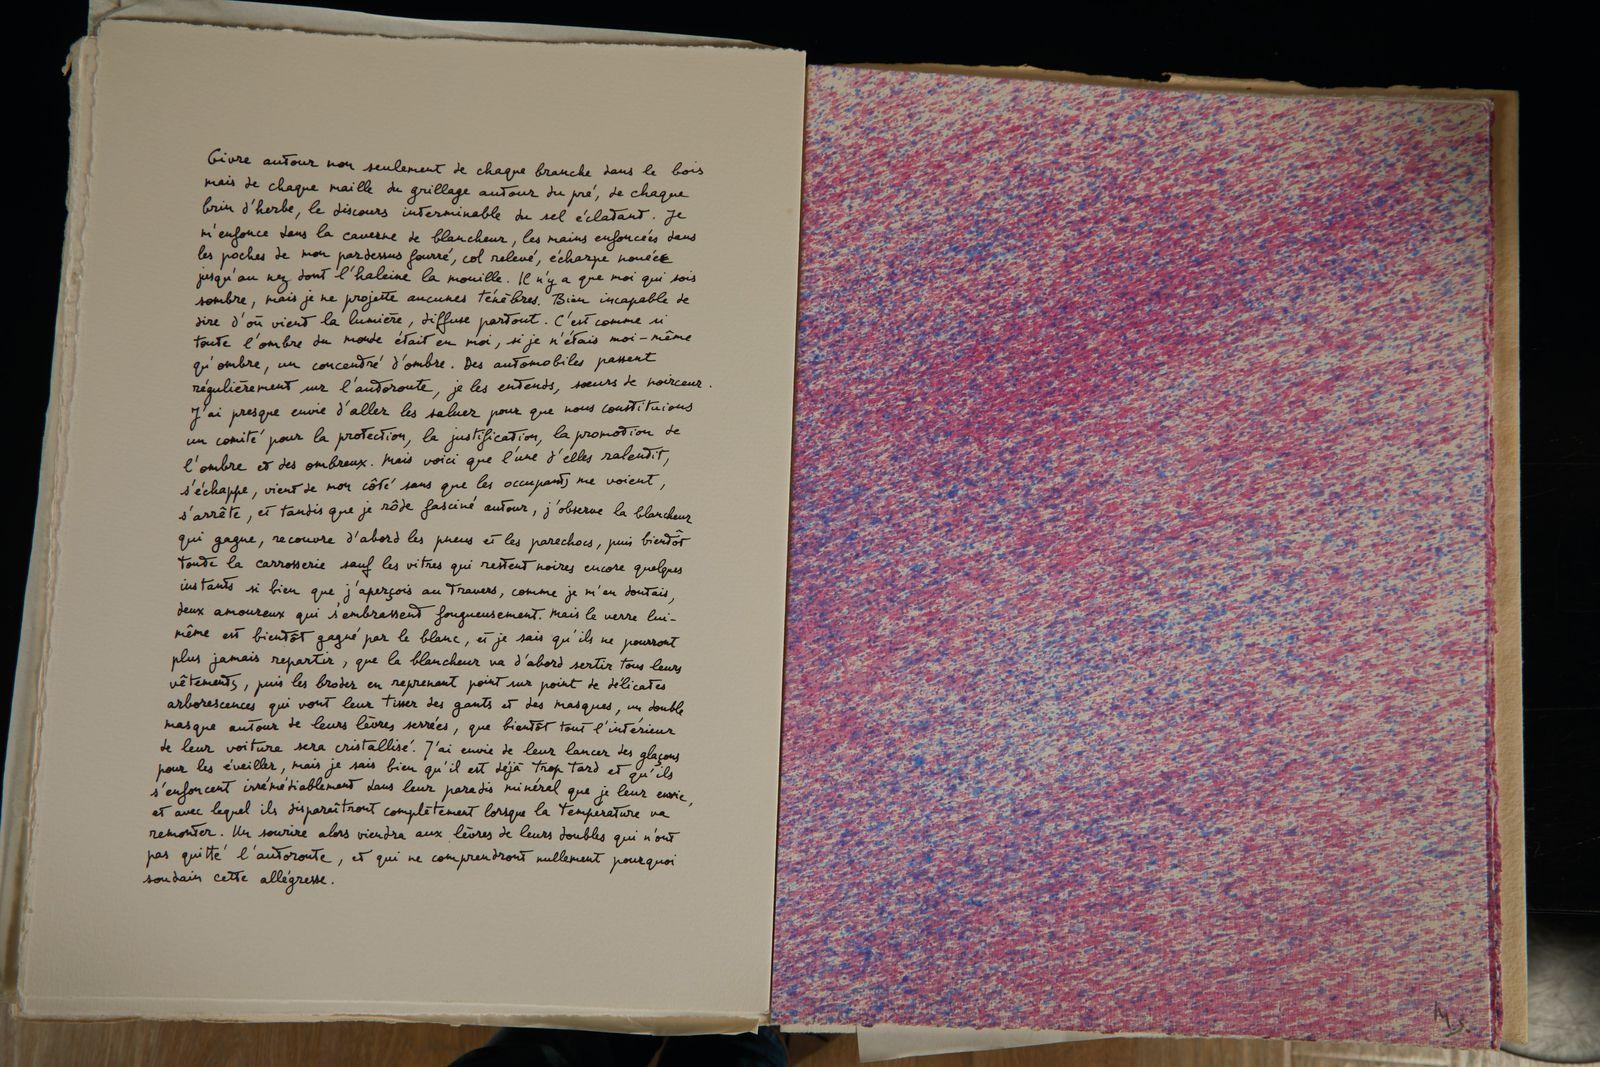 Givre autour non seulement de chaque branche dans le bois
mais de chaque maille du grillage autour du pré, de chaque
brin d'herbe, le discours interminable du sel éclatant. Je
m'enfonce dans la caverne de blancheur, les mains enfoncées dans
les poches de mon pardessus fourré, col relevé, écharpe nouée
jusqu'au nez dont l'haleine la mouille. Il n'y a que moi qui sois
sombre, mais je ne projette aucunes ténèbres. Bien incapable de
dire d'où vient la lumière, diffuse partout. C'est comme si
toute l'ombre du monde était en moi, si je n'étais moi-même
qu'ombre, un concentré d'ombre. Des automobiles passent
régulièrement sur l'autoroute, je les entends, sœurs de noirceur.
J'ai presque envie d'aller les saluer pour que nous constituions
un comité pour la protection, la justification, la promotion de
l'ombre et des ombreux. Mais voici que l'une d'elles ralentit,
s'échappe, vient de mon côté sans que les occupants me voient,
s'arrête, et tandis que je rôde fasciné autour, j'observe la blancheur
qui gagne, recouvre d'abord les pneus et les parechocs, puis bientôt
toute la carrosserie sauf les vitres qui restent noires encore quelques
instants si bien que j'aperçois au travers, comme je m'en doutais,
deux amoureux qui s'embrassent fougueusement. Mais le verre lui-
même est bientôt gagné par le blanc, et je sais qu'ils ne pourront
plus jamais repartir, que la blancheur va d'abord sertir tous leurs
vêtements, puis les broder en reprenant point sur point de délicates
arborescences qui vont leur tisser des gants et des masques, un double
masque autour de leurs lèvres serrées, que bientôt tout l'intérieur
de leur voiture sera cristallisé. J'ai envie de leur lancer des glaçons
pour les éveiller, mais je sais bien qu'il est déjà trop tard et qu'ils
s'enfoncent irrémédiablement dans leur paradis minéral que je leur envie,
et avec lequel ils disparaîtront complètement lorsque la température va
remonter. Un sourire alors viendra aux lèvres de leurs doubles qui n'ont
pas quitté l'autoroute, et qui ne comprendront nullement pourquoi
soudain cette allégresse.